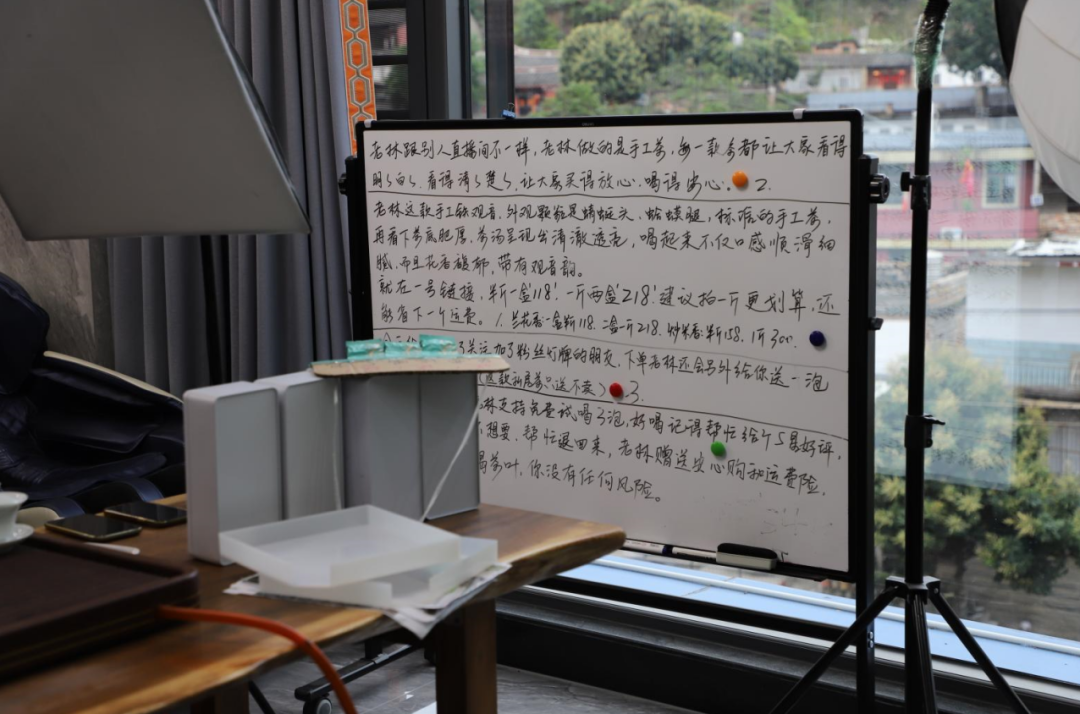 老林跟别人直播间不一样，老林做的是手工茶，每一款茶都让大家看得
明明白白，看得清清楚楚，让大家买得放心，喝得安心。 2.
老林这款手工铁观音，外观颗粒是蜻蜓头，蛤蟆腿，标准的手工茶，
再看下茶底肥厚，茶汤呈现出清澈透亮，喝起来不仅口感顺滑细
腻，而且花香馥郁，带有观音韵。
就在一号链接，半斤一盒118！一斤两盒218！建议拍一斤更划算，还
能省下一个运费。 1. 兰花香一盒半斤118. 二盒一斤218. 炒米香:半斤158. 1斤300.
了关注加了粉丝灯牌的朋友，下单老林还会另外给你送一泡
只送不卖） 3.
林支持免费试喝3泡，好喝记得帮忙给个5星好评，
不想要，帮忙退回来，老林赠送安心购和运费险，
茶叶，你没有任何风险。